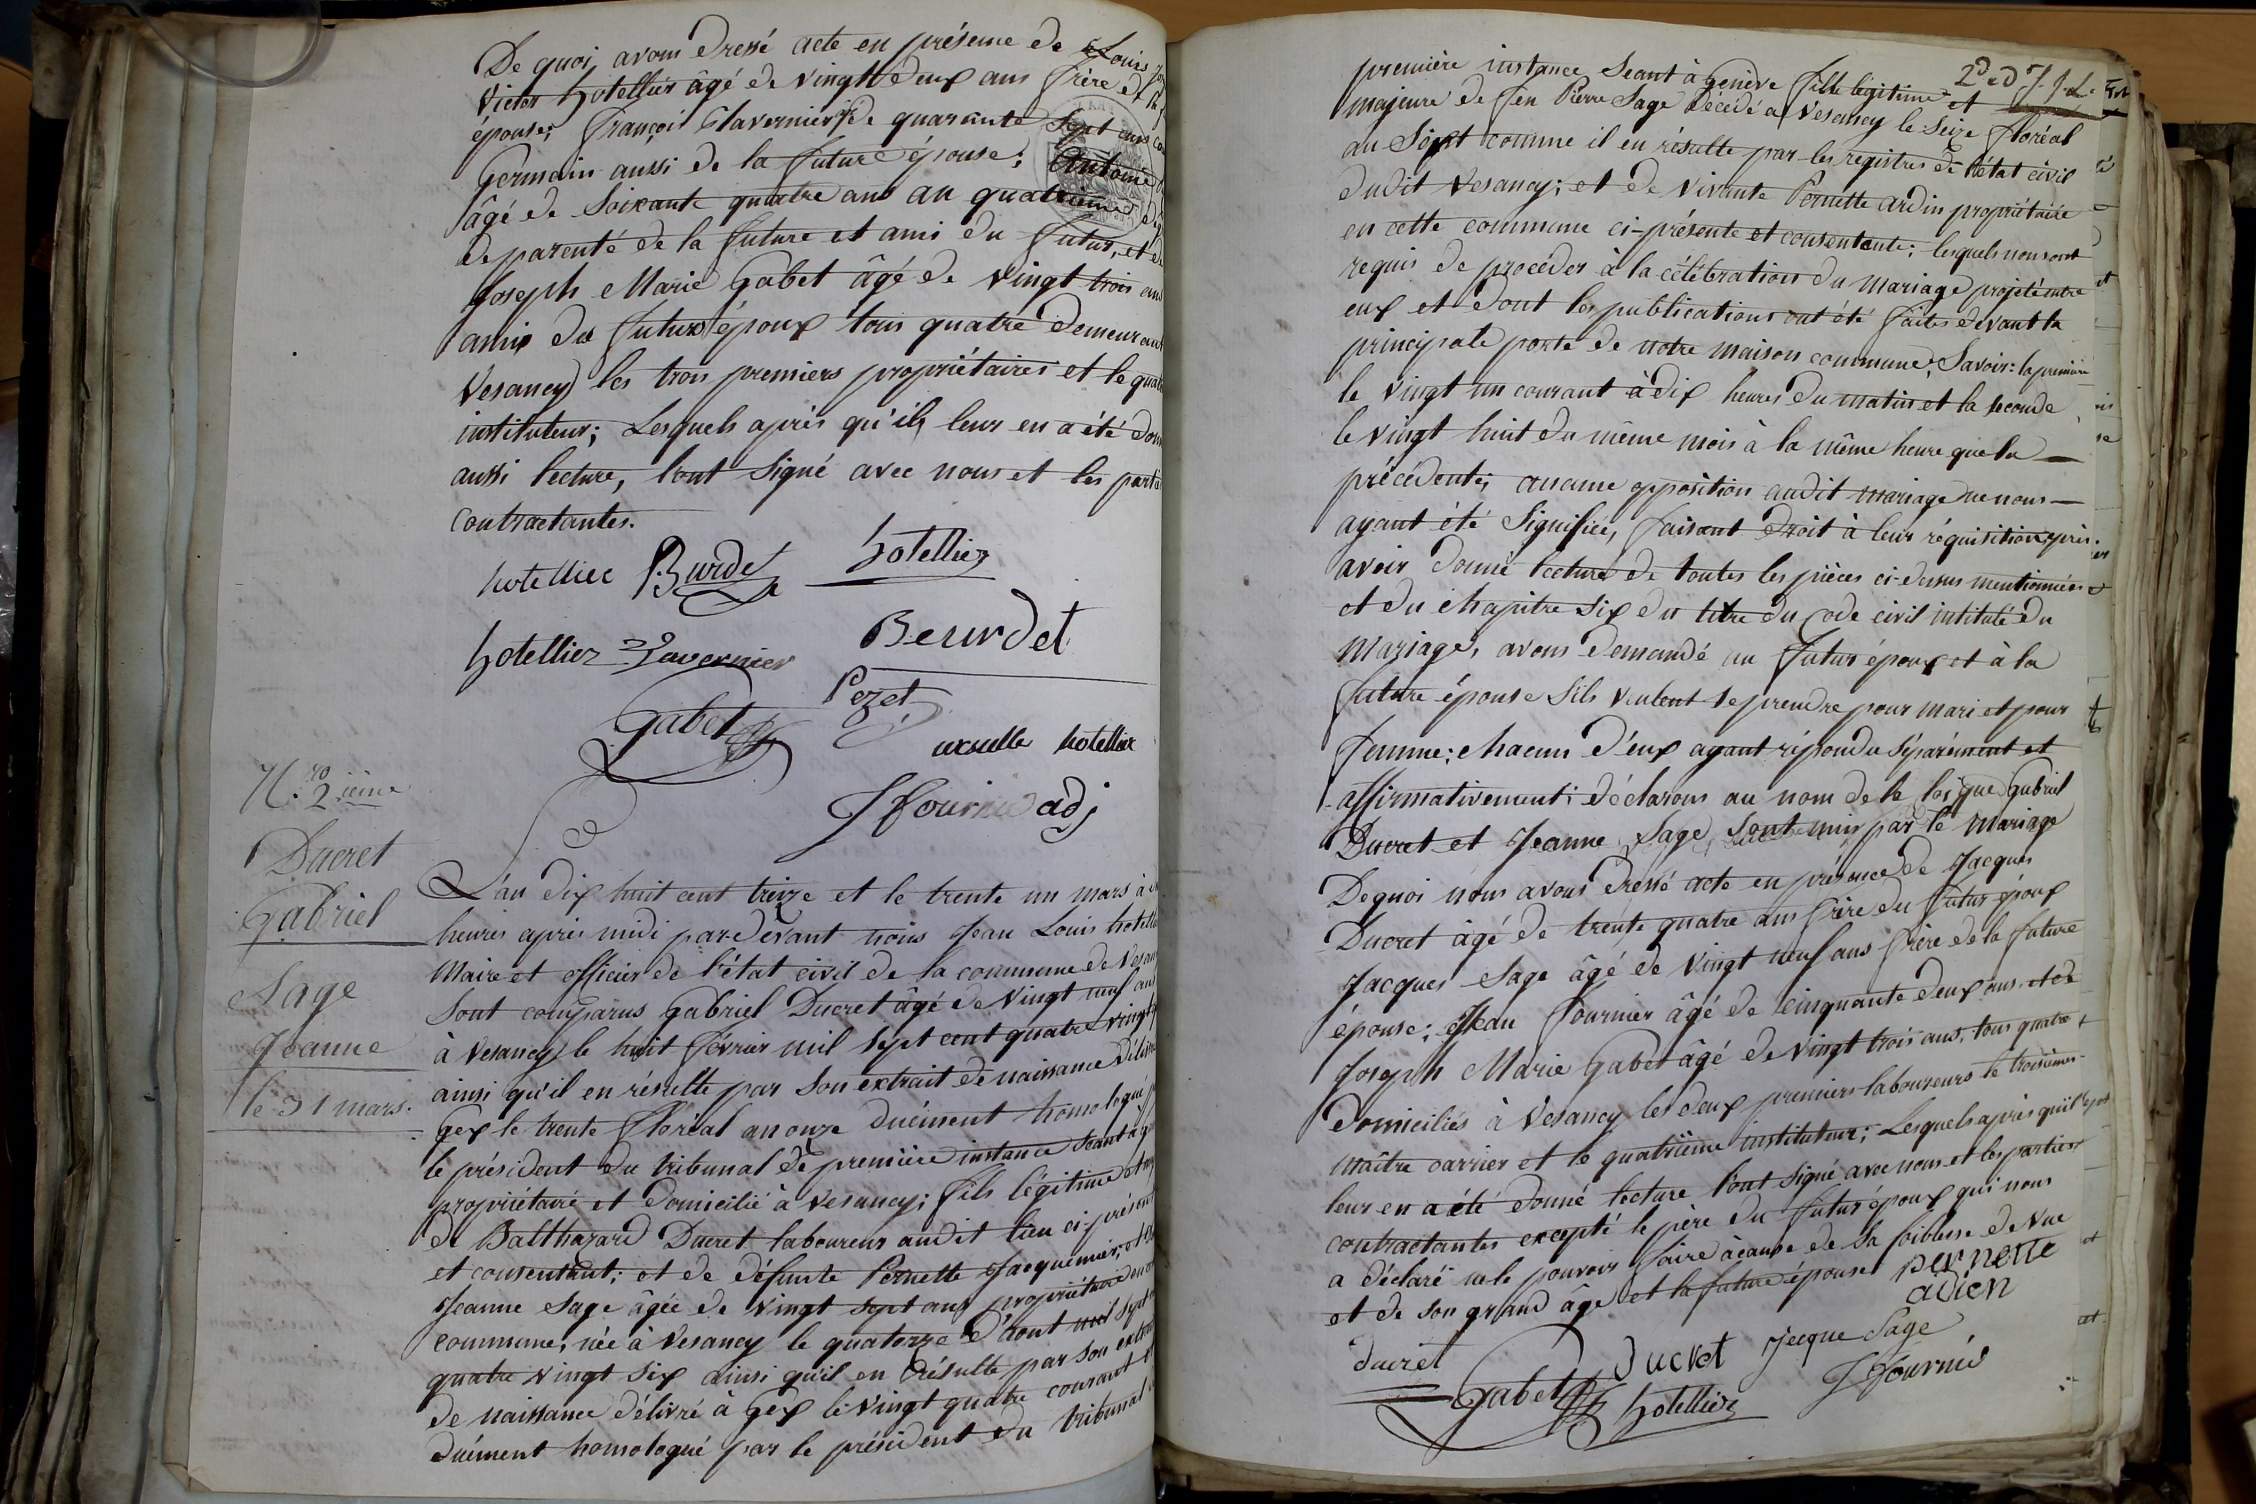 De quoi, avons dressé acte en présence de Louis
Victor hotellier âgé de vingt deux ans frère de
épouse; François Tavernier de quarante sept ans
Germain aussi de la future épouse; Antoine
âgé de soixante quatre ans au quatrieme
de parenté de la future et ami du futur, et de
Joseph Marie Gabet âgé de vingt trois ans
ami du futur époux tous quatre demeurant
Vesancy les trois premiers propriétaires et le quat
instituteur; Lesquels après qu'il leur en a été don
aussi lecture, l'ont signé avec nous et les partie
contractantes.
hotellier Burdet hotellier
hotellier Tavernier Beurdet
Gabet Pezet
ursulle hotellier
J fournier adj
N.ro 2ieme
Ducret
Gabriel
Sage
Jeanne
le 31 mars.
L'an dix huit cent treize et le trente un mars à
heures après midi par-devant nous Jean Louis hotell
Maire et officier de l'état civil de la commune de Vesan
Sont comparus Gabriel Ducret âgé de vingt neuf ans
à Vesancy le huit février mil sept cent quatre vingt
ainsi qu'il en résulte par son extrait de naissance délivré
Gex le trente floréal an onze duement homologué
le président du tribunal de première instance séant à
propriétaire et domicilié à Vesancy; fils légitime et
de Balthazard Ducret laboureur audit lieu ci-présent
et consentant; et de défunte Pernette Jacquemier; et
Jeanne Sage âgée de vingt sept ans propriétaire en
commune, née à Vesancy le quatorze d'aout mil sept
quatre vingt six ainsi qu'il en résulte par son extrait
de naissance délivré à Gex le vingt quatre courant
duement homologué par le président du tribunal
2d ed J. J. L.
première instance séant à Genève fille légitime et
majeure de feu Pierre Sage décédé à Vesancy le seize floréal
an Sept comme il en résulte par les registres de l'état civil
dudit Vesancy; et de vivante Pernette ardin propriétaire
en cette commune ci-présente et consentante; lesquels nous ont
requis de procéder à la célébration du mariage projeté entre
eux et dont les publications ont été faites devant la
principale porte de notre maison commune; Savoir: la première
le vingt un courant à dix heures du matin et la seconde
le vingt huit du même mois à la même heure que la
précédente; aucune opposition audit mariage ne nous
ayant été signifiée, faisant droit à leur réquisition, après
avoir donné lecture de toutes les pièces ci-dessus mentionnées
et du chapitre six du titre du Code civil intitulé du
Mariage, avons demandé au futur époux et à la
future épouse s'ils veulent se prendre pour mari et pour
femme; chacun d'eux ayant répondu séparément et
affirmativement; déclarons au nom de la loi que Gabriel
Ducret et Jeanne Sage sont unis par le mariage
De quoi nous avons dressé acte en présence de Jacques
Ducret âgé de trente quatre ans frère du futur époux
Jacques Sage âgé de vingt neuf ans frère de la future
épouse; Jean Fournier âgé de cinquante deux ans et de
Joseph Marie Gabet âgé de vingt trois ans, tous quatre
domiciliés à Vesancy les deux premiers laboureurs le troisième
maître carrier et le quatrième instituteur; Lesquels après qu'il
leur en a été donné lecture l'ont signé avec nous et les parties
contractantes excepté le père du futur époux qui nous
a déclaré ne le pouvoir faire à cause de sa foiblesse de vue
et de son grand âge et la future épouse pernette
ardien
ducret Ducret Jacque Sage
Gabet hotellier J fournié